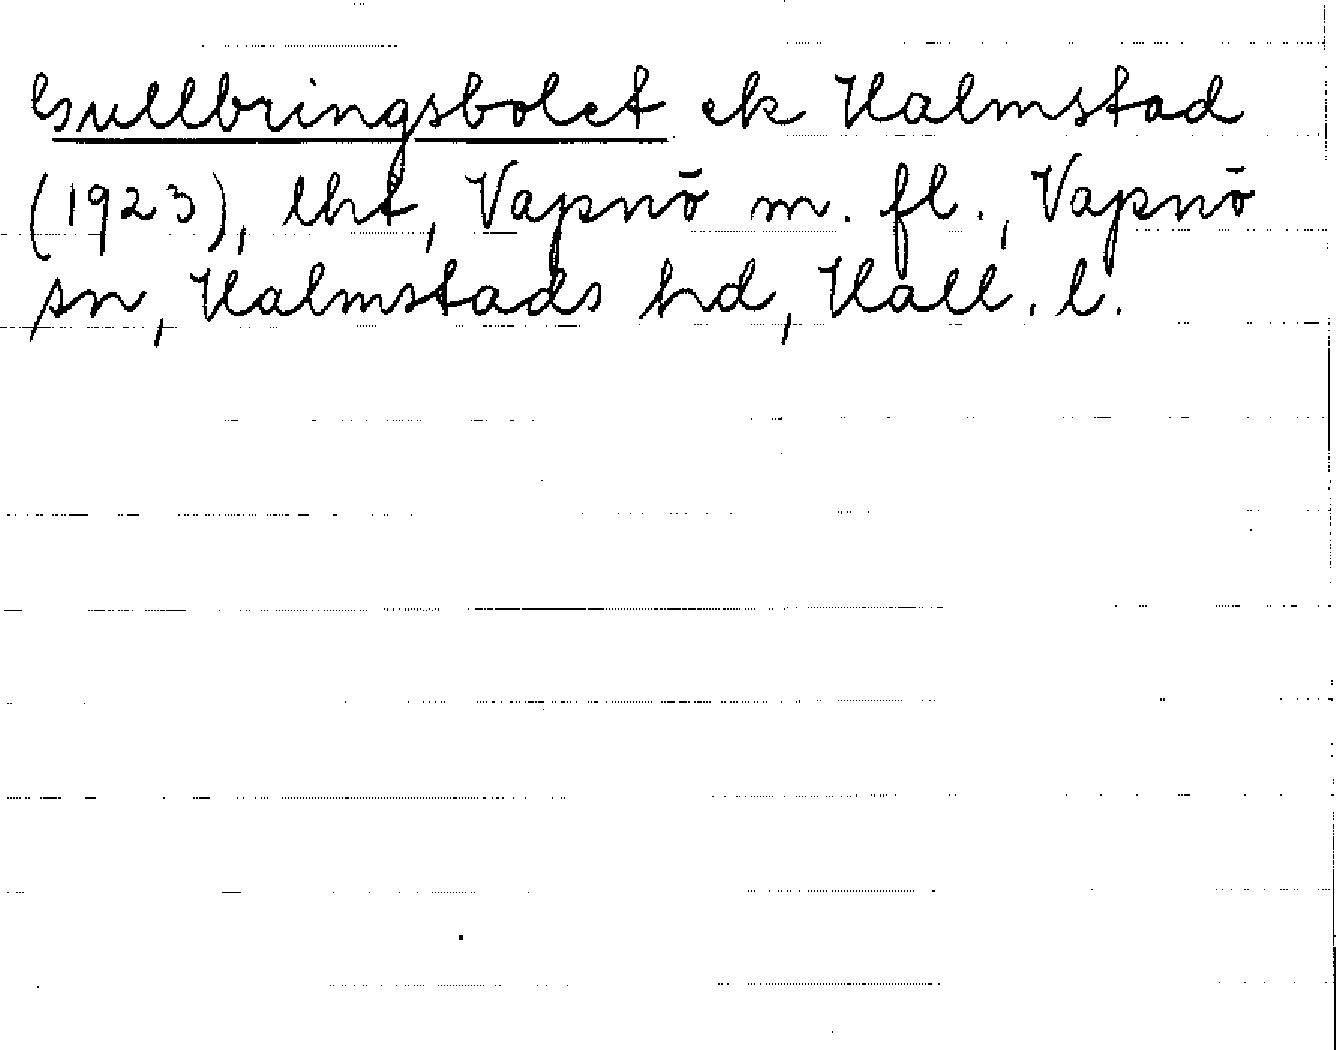 Gullbringsbolet ek Halmstad
(1923), lht, Vapnö m. fl., Vapnö
sn, Halmstads hd, Hall. l.